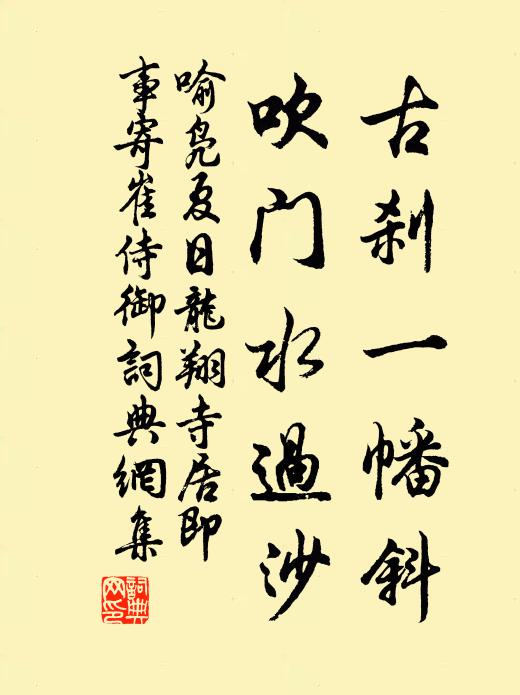 古刹一幡斜
吹門水過沙
喻凫夏日龍翔寺居即
事寄崔侍御詞典網集
詞典網印